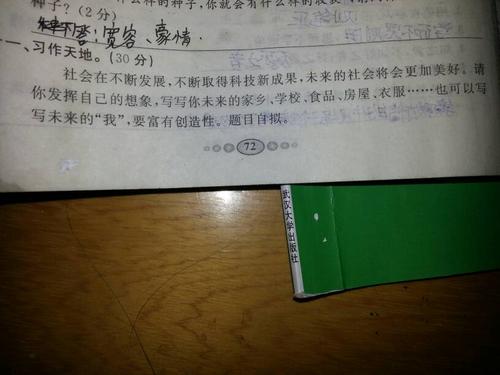 种子？(2分)
答：宽容、豪情.
一、习作天地。(30分)
社会在不断发展，不断取得科技新成果，未来的社会将会更加美好。请
你发挥自己的想象，写写你未来的家乡、学校、食品、房屋、衣服……也可以写
写未来的“我”，要富有创造性。题目自拟。
72
武汉大学出版社